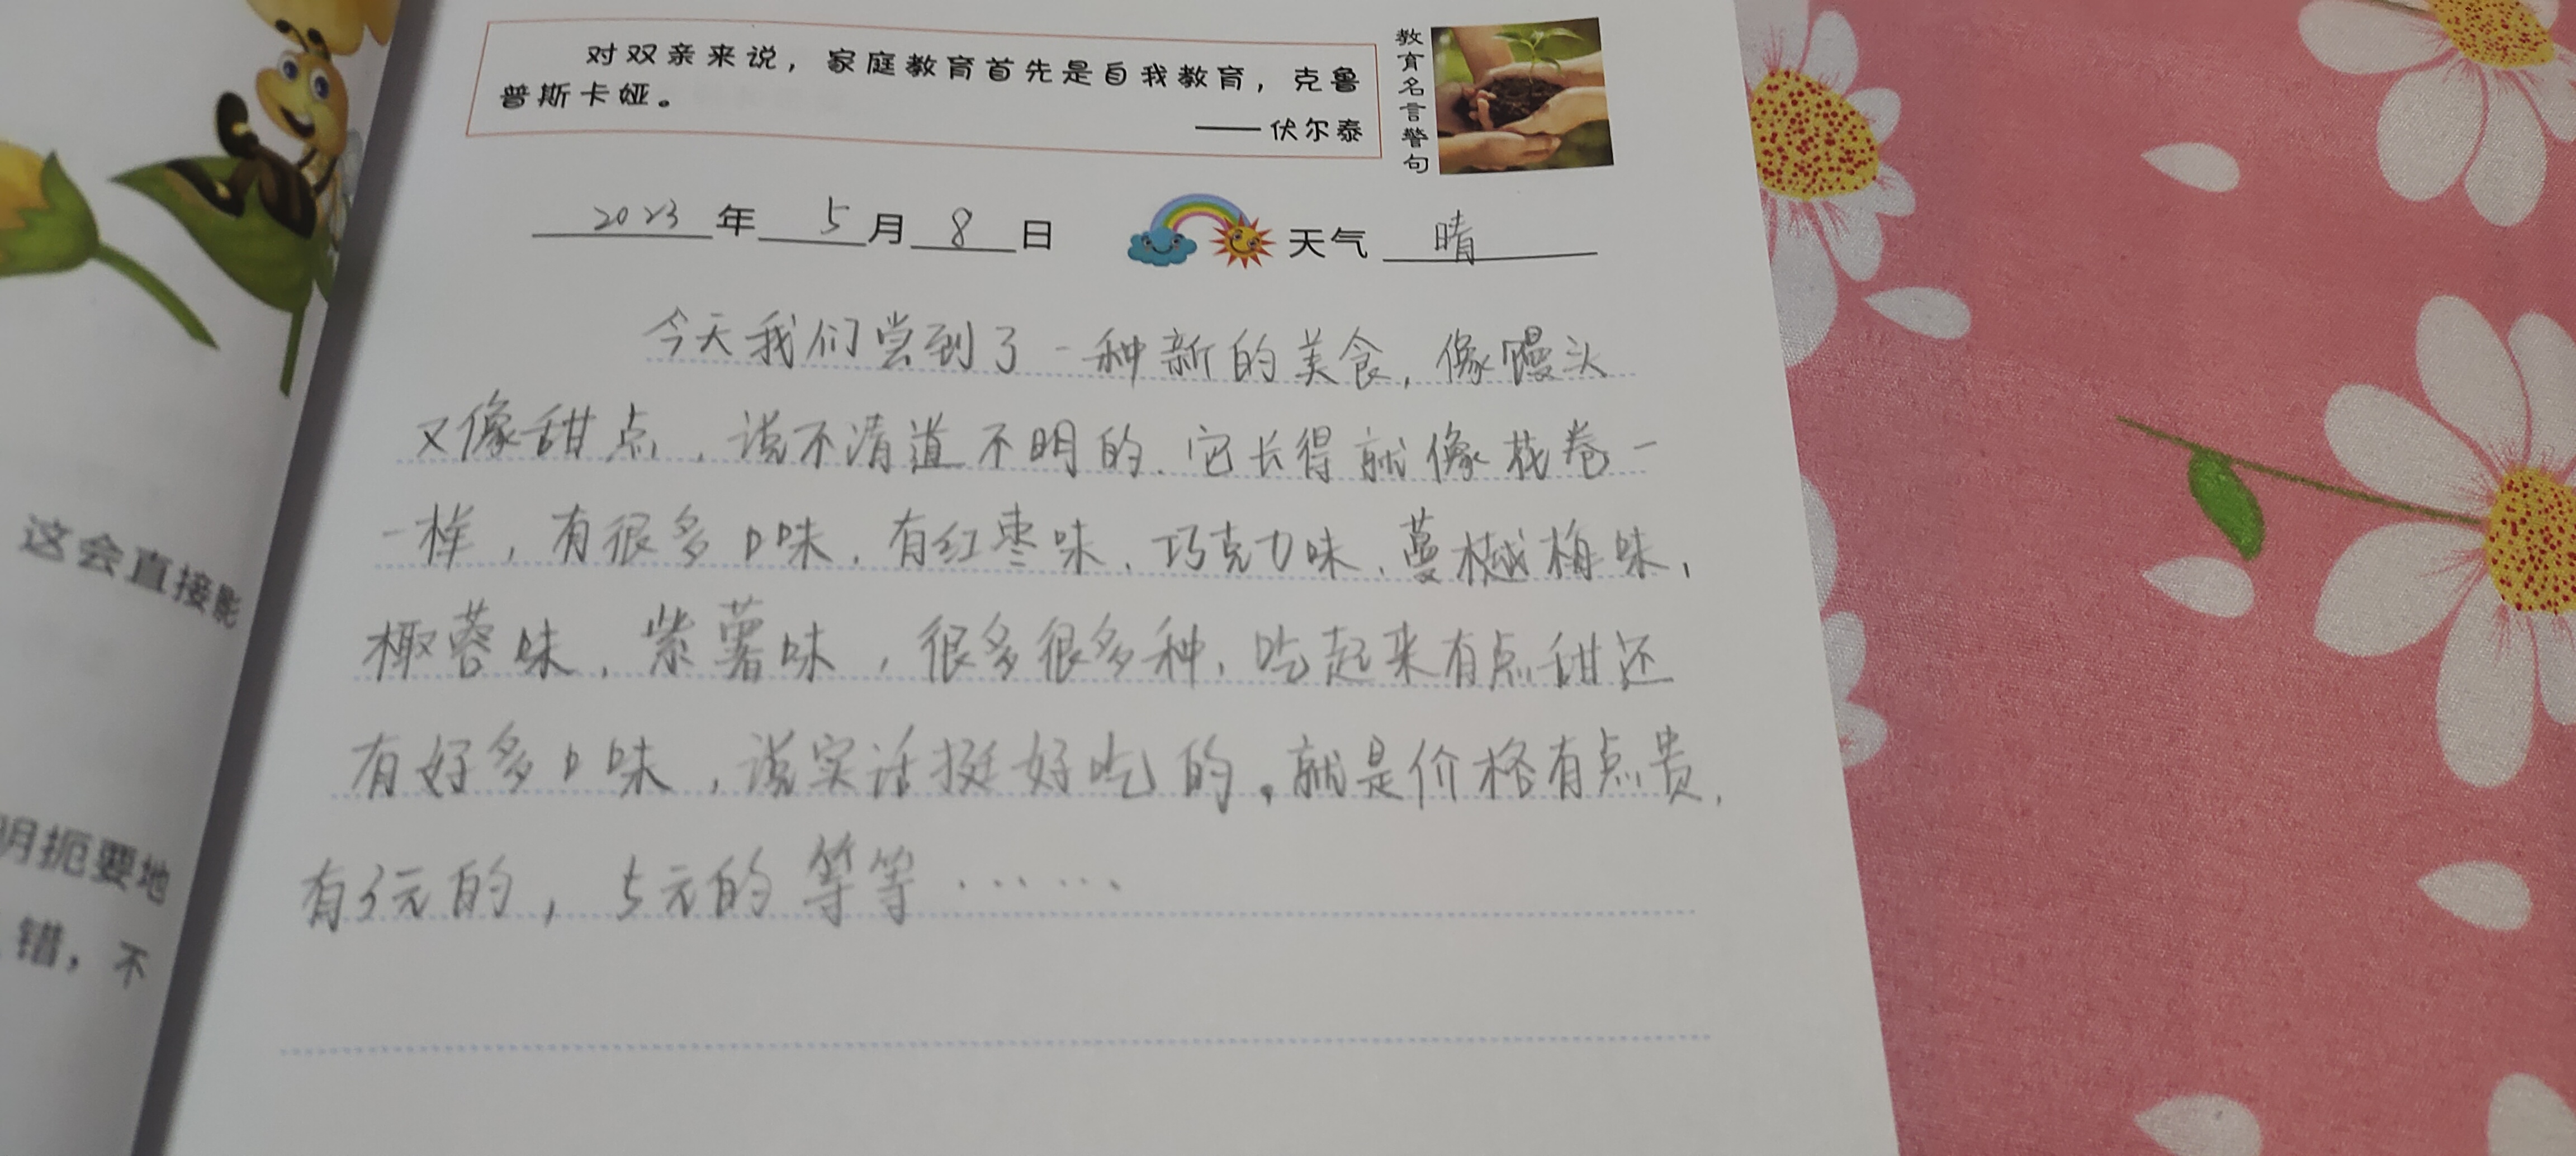 对双亲来说，家庭教育首先是自我教育，克鲁
普斯卡娅。
——伏尔泰
教育名言警句
2023年5月8日 天气 晴
今天我们尝到了一种新的美食，像馒头
又像甜点，说不清道不明的、它长得就像花卷一
一样，有很多口味，有红枣味、巧克力味、蔓樾梅味，
椰蓉味、紫薯味，很多很多种，吃起来有点甜还
有好多口味，说实话挺好吃的。就是价格有点贵，
有3元的，5元的等等……
这会直接影
明扼要地
错，不